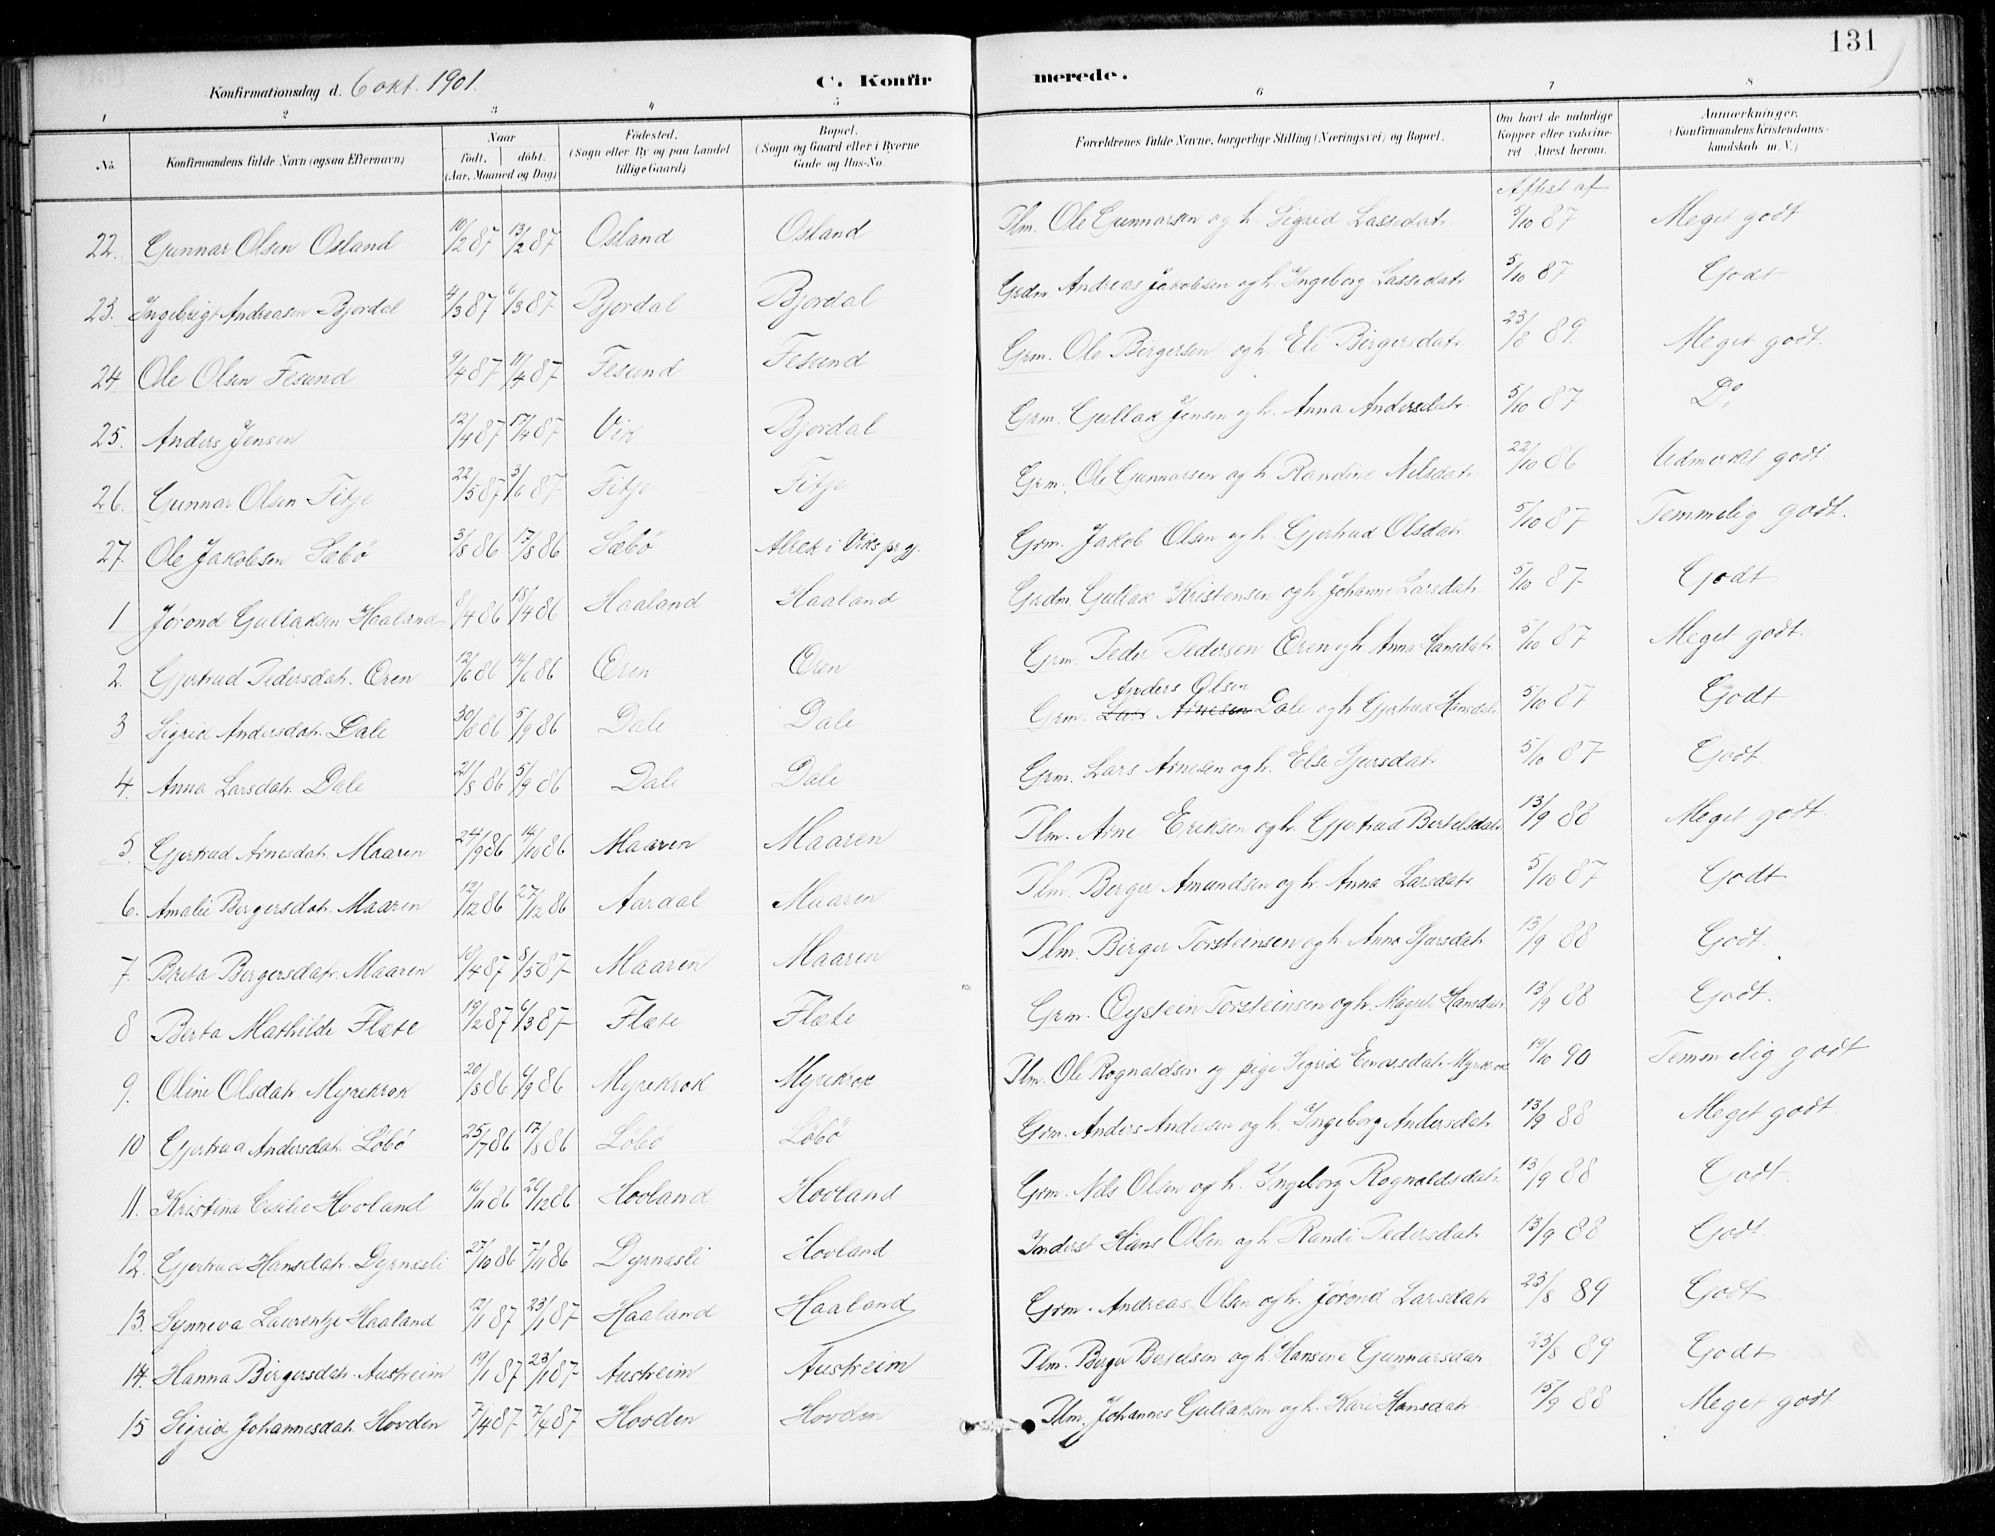 131
Konfirmationsdag d. 6 okt. 1901. C. Konfirmerede.
1 2 3 4 5 6 7 8
No. Konfirmandens fulde Navn (ogsaa Efternavn) Naar født, døbt. (Aar, Maaned og Dag) Fødested. (Sogn eller By og paa Landet tillige Gaard) Bopæl. (Sogn og Gaard eller i Byerne Gade og Hus-No. Forældrenes fulde Navne, borgerlige Stilling (Næringsvei) og Bopæl. Om havt de naturlige Kopper eller vaccineret. Attest herom. Anmærkninger. (Konfirmandens Kristendomskundskab m. V.)
Attest af
22. Gunnar Olsen Osland 10/2 87 13/2 87 Osland Osland Plm. Ole Gunnarsen og h. Sigrid Lassedatr. 5/10 87 Meget godt
23. Ingebrigt Andreasen Bjordal 4/3 87 6/3 87 Bjordal Bjordal Grdm. Andreas Jakobsen og h. Ingeborg Lassedatr. 5/10 87 Godt
24. Ole Olsen Fesund 9/4 87 11/4 87 Fesund Fesund Grm. Ole Bergersen og h. Eli Børgersdatr. 23/8 89. Meget godt.
25. Anders Jensen 12/4 87 17/4 87 Vik Bjordal Grm. Gullak Jensen og h. Anna Andersdatr. 5/10 87 Do,
26. Gunnar Olsen Fitje 22/5 87 3/6 87 Fitje Fitje Grm. Ole Gunnarsen og h. Randine Nilsdatr. 22/10 86 Udmerket godt.
27. Ole Jakobsen Sæbø 3/8 86 17/8 86 Sæbø Alrek i Viks prgj. Grm. Jakob Olsen og h. Gjertrud Olsdatr. 5/10 87 Temmelig godt.
1 Jørond Gullaksen Haaland 8/4 86 18/4 86 Haaland Haaland Grdm. Gullak Kristensen og h. Johanne Larsdatr. 5/10 87 Godt
2. Gjertrud Pedersdatr. Øren 12/6 86 14/6 86 Øren Øren Grm. Peder Pedersen Øren og h. Anna Hansdatr. 5/10 87 Meget godt.
3 Sigrid Andersdatr. Dale 30/6 86 5/9 86 Dale Dale Grm. Lars Arnesen Anders Olsen Dale og h. Gjertrud Hansdatr. 5/10 87 Godt
4. Anna Larsdatr. Dale 21/8 86 5/9 86 Dale Dale Grm. Lars Arnesen og h. Else Sjursdatr. 5/10 87 Godt.
5 Gjertrud Arnesdatr. Maaren 24/9 86 14/10 86 Maaren Maaren Plm. Arne Eriksen og h. Gjertrud Bertelsdatr. 13/9 88 Meget godt.
6. Amalie Bergersdatr. Maaren 12/12 86 27/12 86 Aardal Maaren Plm. Berger Amundsen og h. Anna Larsdatr. 5/10 87 Godt
7. Brita Bergersdatr. Maaren 16/4 87 8/5 87 Maaren Maaren Plm. Birger Torsteinsen og h. Anna Sjursdatr. 13/9 88 Godt.
8 Berta Mathilde Flæte 19/2 87 6/3 87 Flæte Flæte Grm. Øystein Torsteinsen og h. Magnh. Hansdatr. 13/9 88 Godt.
9. Oline Olsdatr. Myrekrok 20/8 86 6/9 86 Myrekrok Myrekrok Plm. Ole Rognaldsen og pige Sigrid Einarsdatr. Myrekrok 19/10 90 Temmelig godt
10 Gjertrud Andersdatr. Løbø 25/7 86 17/8 86 Løbø Løbø Grm. Anders Andersen og h. Ingeborg Andersdatr. 13/9 88 Meget godt.
11. Kristina Cisilie Hovland 16/11 86 26/12 86 Hovland Hovland Grm. Nils Olsen og h. Ingeborg Rognaldsdatr. 13/9 88 Godt.
12. Gjertrud Hansdatr. Dyrnesli 27/10 86 7/11 86 Dyrnesli Hovland Inderst Hans Olsen og h. Randi Pedersdatr. 13/9 88 Godt.
13. Synneva Laurentze Haaland 12/1 87 23/1 87 Haaland Haaland Grm. Andreas Olsen og h. Jørond Larsdatr. 23/8 89 Godt.
14. Hanna Birgersdatr. Austreim 19/1 87 23/1 87 Austreim Austreim Plm. Berger Bertelsen og h. Hansine Gunnarsdatr. 23/8 89 Godt
15 Sigrid Johannesdatr. Hovden 7/4 87 7/4 87 Hovden Hovden Plm. Johannes Gullaksen og h. Kari Hansdatr. 15/9 88 Meget godt.